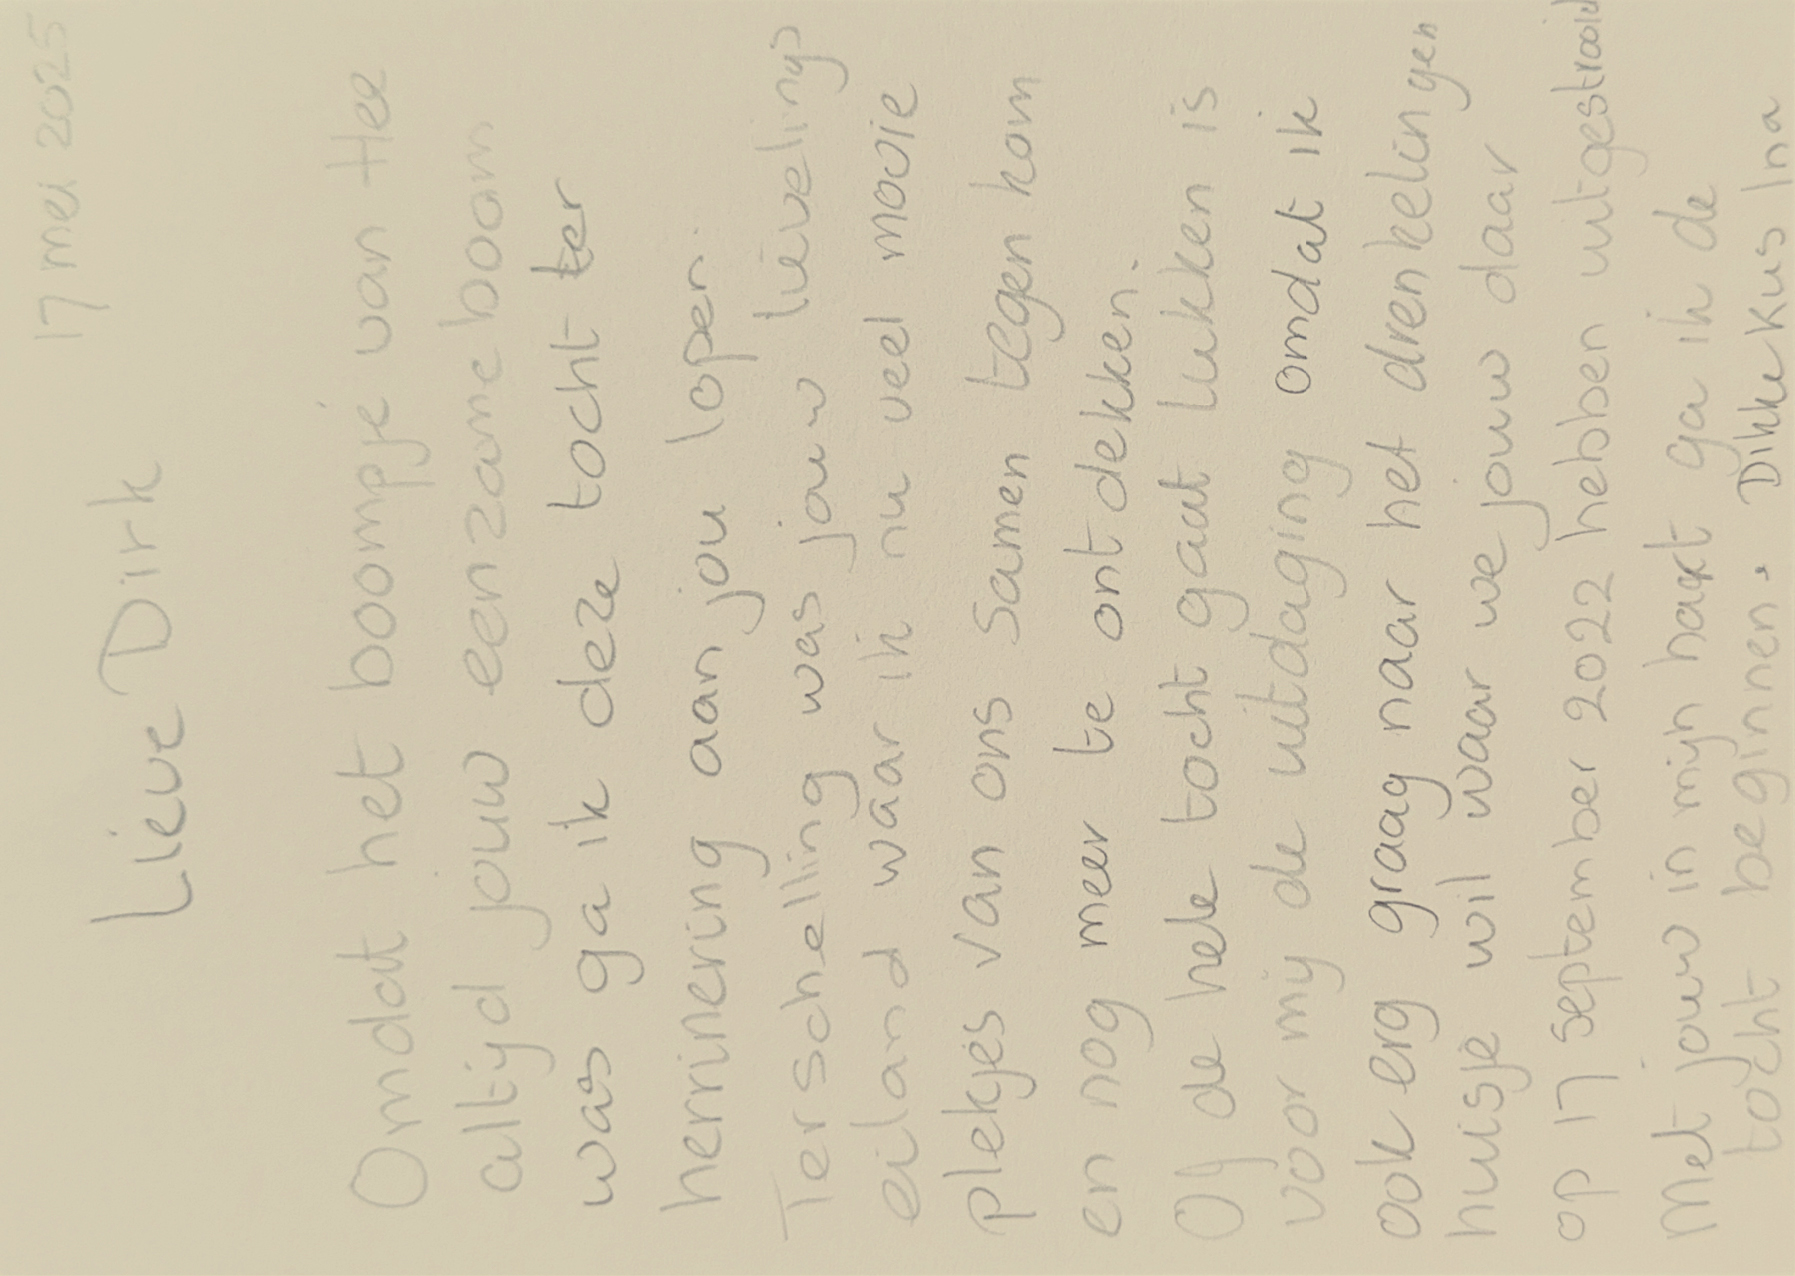 17 mei 2025
Lieve Dirk
Omdat het boompje van Hee
altijd jouw eenzame boom
was ga ik deze tocht ter
herrinering aan jou lopen.
Terschelling was jouw lievelings
eiland waar ik nu veel mooie
plekjes van ons samen tegen kom
en nog meer te ontdekken.
Of de hele tocht gaat lukken is
voor mij de uitdaging omdat ik
ook erg graag naar het drenkelingen
huisje wil waar we jouw daar
op 17 september 2022 hebben uitgestrooid
Met jouw in mijn hart ga ik de
tocht beginnen. Dikke kus Ina